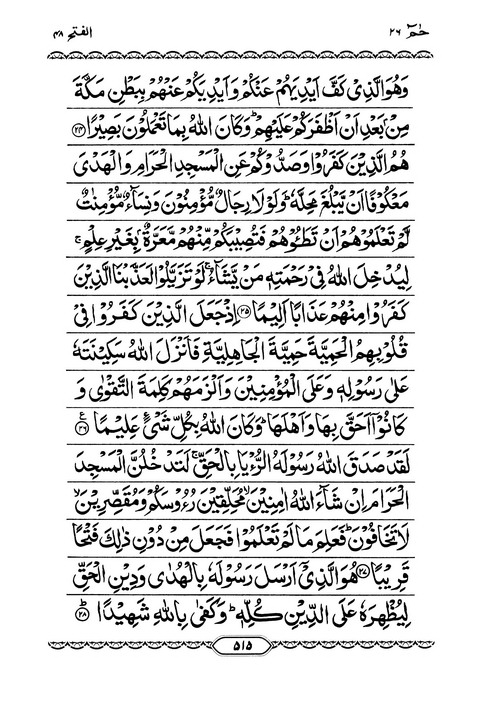 حٰمٓ ٢٦ الفتح ٤٨
وَهُوَ الَّذِیْ كَفَّ اَیْدِیَهُمْ عَنْكُمْ وَاَیْدِیَكُمْ عَنْهُمْ بِبَطْنِ مَكَّةَ
مِنْۢ بَعْدِ اَنْ اَظْفَرَكُمْ عَلَیْهِمْ ؕ وَكَانَ اللّٰهُ بِمَا تَعْمَلُوْنَ بَصِیْرًا ﴿٢٤﴾
هُمُ الَّذِیْنَ كَفَرُوْا وَصَدُّوْكُمْ عَنِ الْمَسْجِدِ الْحَرَامِ وَالْهَدْیَ
مَعْكُوْفًا اَنْ یَّبْلُغَ مَحِلَّهٗ ؕ وَلَوْلَا رِجَالٌ مُّؤْمِنُوْنَ وَنِسَآءٌ مُّؤْمِنٰتٌ
لَّمْ تَعْلَمُوْهُمْ اَنْ تَطَـُٔوْهُمْ فَتُصِیْبَكُمْ مِّنْهُمْ مَّعَرَّةٌۢ بِغَیْرِ عِلْمٍ ۚ
لِیُدْخِلَ اللّٰهُ فِیْ رَحْمَتِهٖ مَنْ یَّشَآءُ ۚ لَوْ تَزَیَّلُوْا لَعَذَّبْنَا الَّذِیْنَ
كَفَرُوْا مِنْهُمْ عَذَابًا اَلِیْمًا ﴿٢٥﴾ اِذْ جَعَلَ الَّذِیْنَ كَفَرُوْا فِیْ
قُلُوْبِهِمُ الْحَمِیَّةَ حَمِیَّةَ الْجَاهِلِیَّةِ فَاَنْزَلَ اللّٰهُ سَكِیْنَتَهٗ
عَلٰی رَسُوْلِهٖ وَعَلَی الْمُؤْمِنِیْنَ وَاَلْزَمَهُمْ كَلِمَةَ التَّقْوٰی وَ
كَانُوْۤا اَحَقَّ بِهَا وَاَهْلَهَا ؕ وَكَانَ اللّٰهُ بِكُلِّ شَیْءٍ عَلِیْمًا ﴿٢٦﴾ ع
لَقَدْ صَدَقَ اللّٰهُ رَسُوْلَهُ الرُّءْیَا بِالْحَقِّ ۚ لَتَدْخُلُنَّ الْمَسْجِدَ
الْحَرَامَ اِنْ شَآءَ اللّٰهُ اٰمِنِیْنَ ۙ مُحَلِّقِیْنَ رُءُوْسَكُمْ وَمُقَصِّرِیْنَ ۙ
لَا تَخَافُوْنَ ؕ فَعَلِمَ مَا لَمْ تَعْلَمُوْا فَجَعَلَ مِنْ دُوْنِ ذٰلِكَ فَتْحًا
قَرِیْبًا ﴿٢٧﴾ هُوَ الَّذِیْۤ اَرْسَلَ رَسُوْلَهٗ بِالْهُدٰی وَدِیْنِ الْحَقِّ
لِیُظْهِرَهٗ عَلَی الدِّیْنِ كُلِّهٖ ؕ وَكَفٰی بِاللّٰهِ شَهِیْدًا ﴿٢٨﴾ ؕ
٥١٥